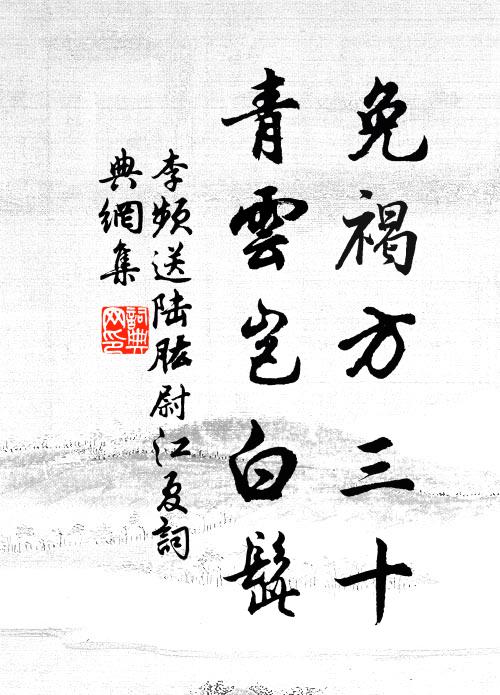 免褐方三十
青雲豈白髭
李頻送陸肱尉江夏詞
典網集
詞典
网印